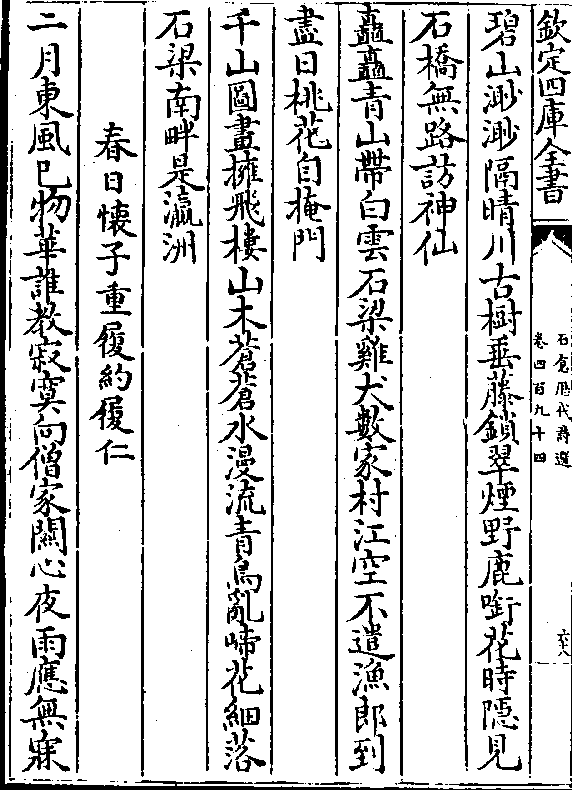 欽定四庫全書
石倉歷代詩選
卷四百九十四
六八
碧山渺渺隔晴川古樹垂藤鎖翠煙野鹿啣花時隱見
石橋無路訪神仙
矗矗青山帶白雲石梁雞犬數家村江空不遣漁郎到
盡日桃花自掩門
千山圖畫擁飛樓山木蒼蒼水漫流青鳥亂啼花細落
石梁南畔是瀛洲
春日懷子重履約履仁
二月東風已物華誰教寂寞向僧家關心夜雨應無寐